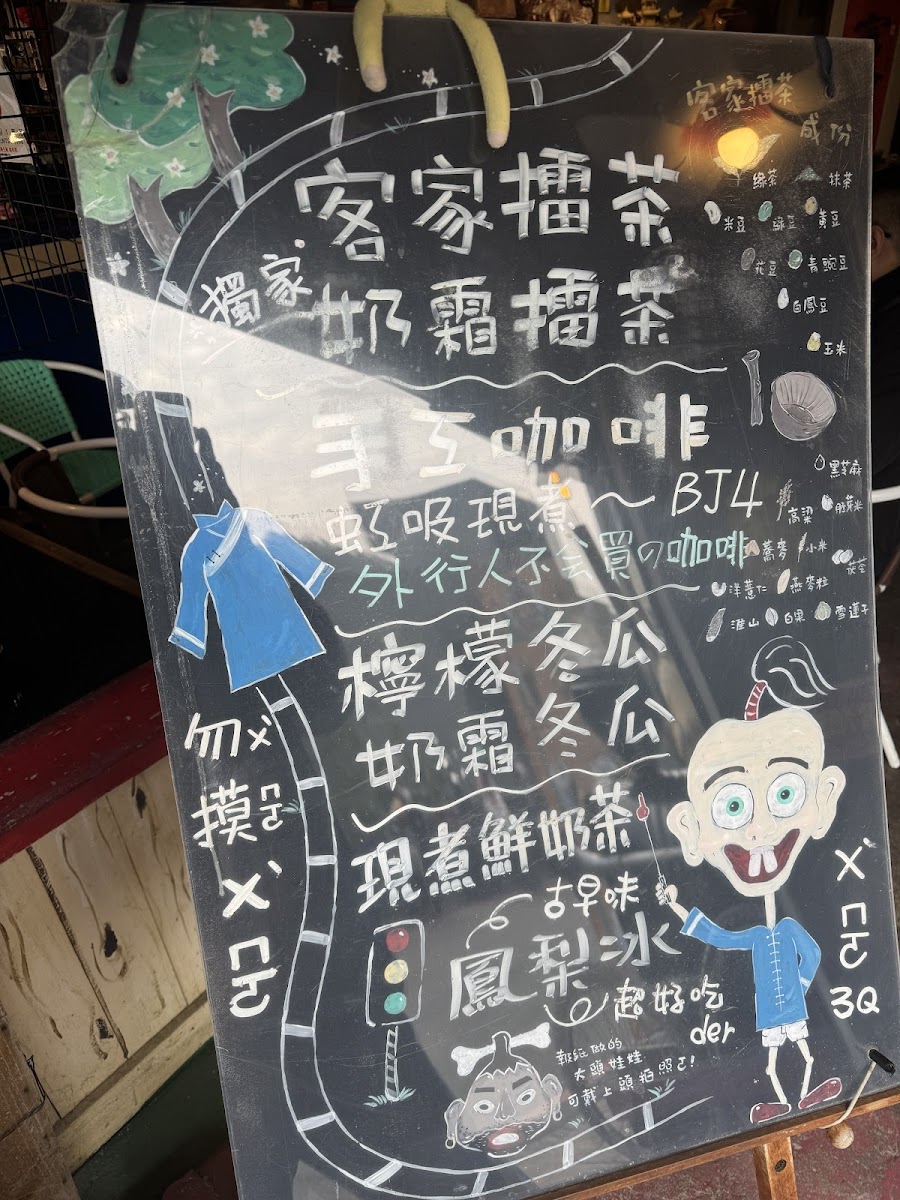 客家擂茶
獨家
奶霜擂茶
手工咖啡
虹吸現煮~BJ4
外行人不会買の咖啡
檸檬冬瓜
奶霜冬瓜
現煮鮮奶茶
古早味
鳳梨冰
超好吃
der
報紙做的
大頭娃娃
可戴上頭拍照了!
勿ㄨˋ
摸ㄇㄛ
ㄨˋ
ㄇㄛ
客家擂茶
成份
綠茶 抹茶
米豆 綠豆 黃豆
花豆 青豌豆
白鳳豆
玉米
黑芝麻
高粱 胚芽米
蕎麥 小米 茯苓
洋薏仁 燕麥粒
淮山 白果 雪蓮子
ㄨˋ
ㄇㄛ
3Q